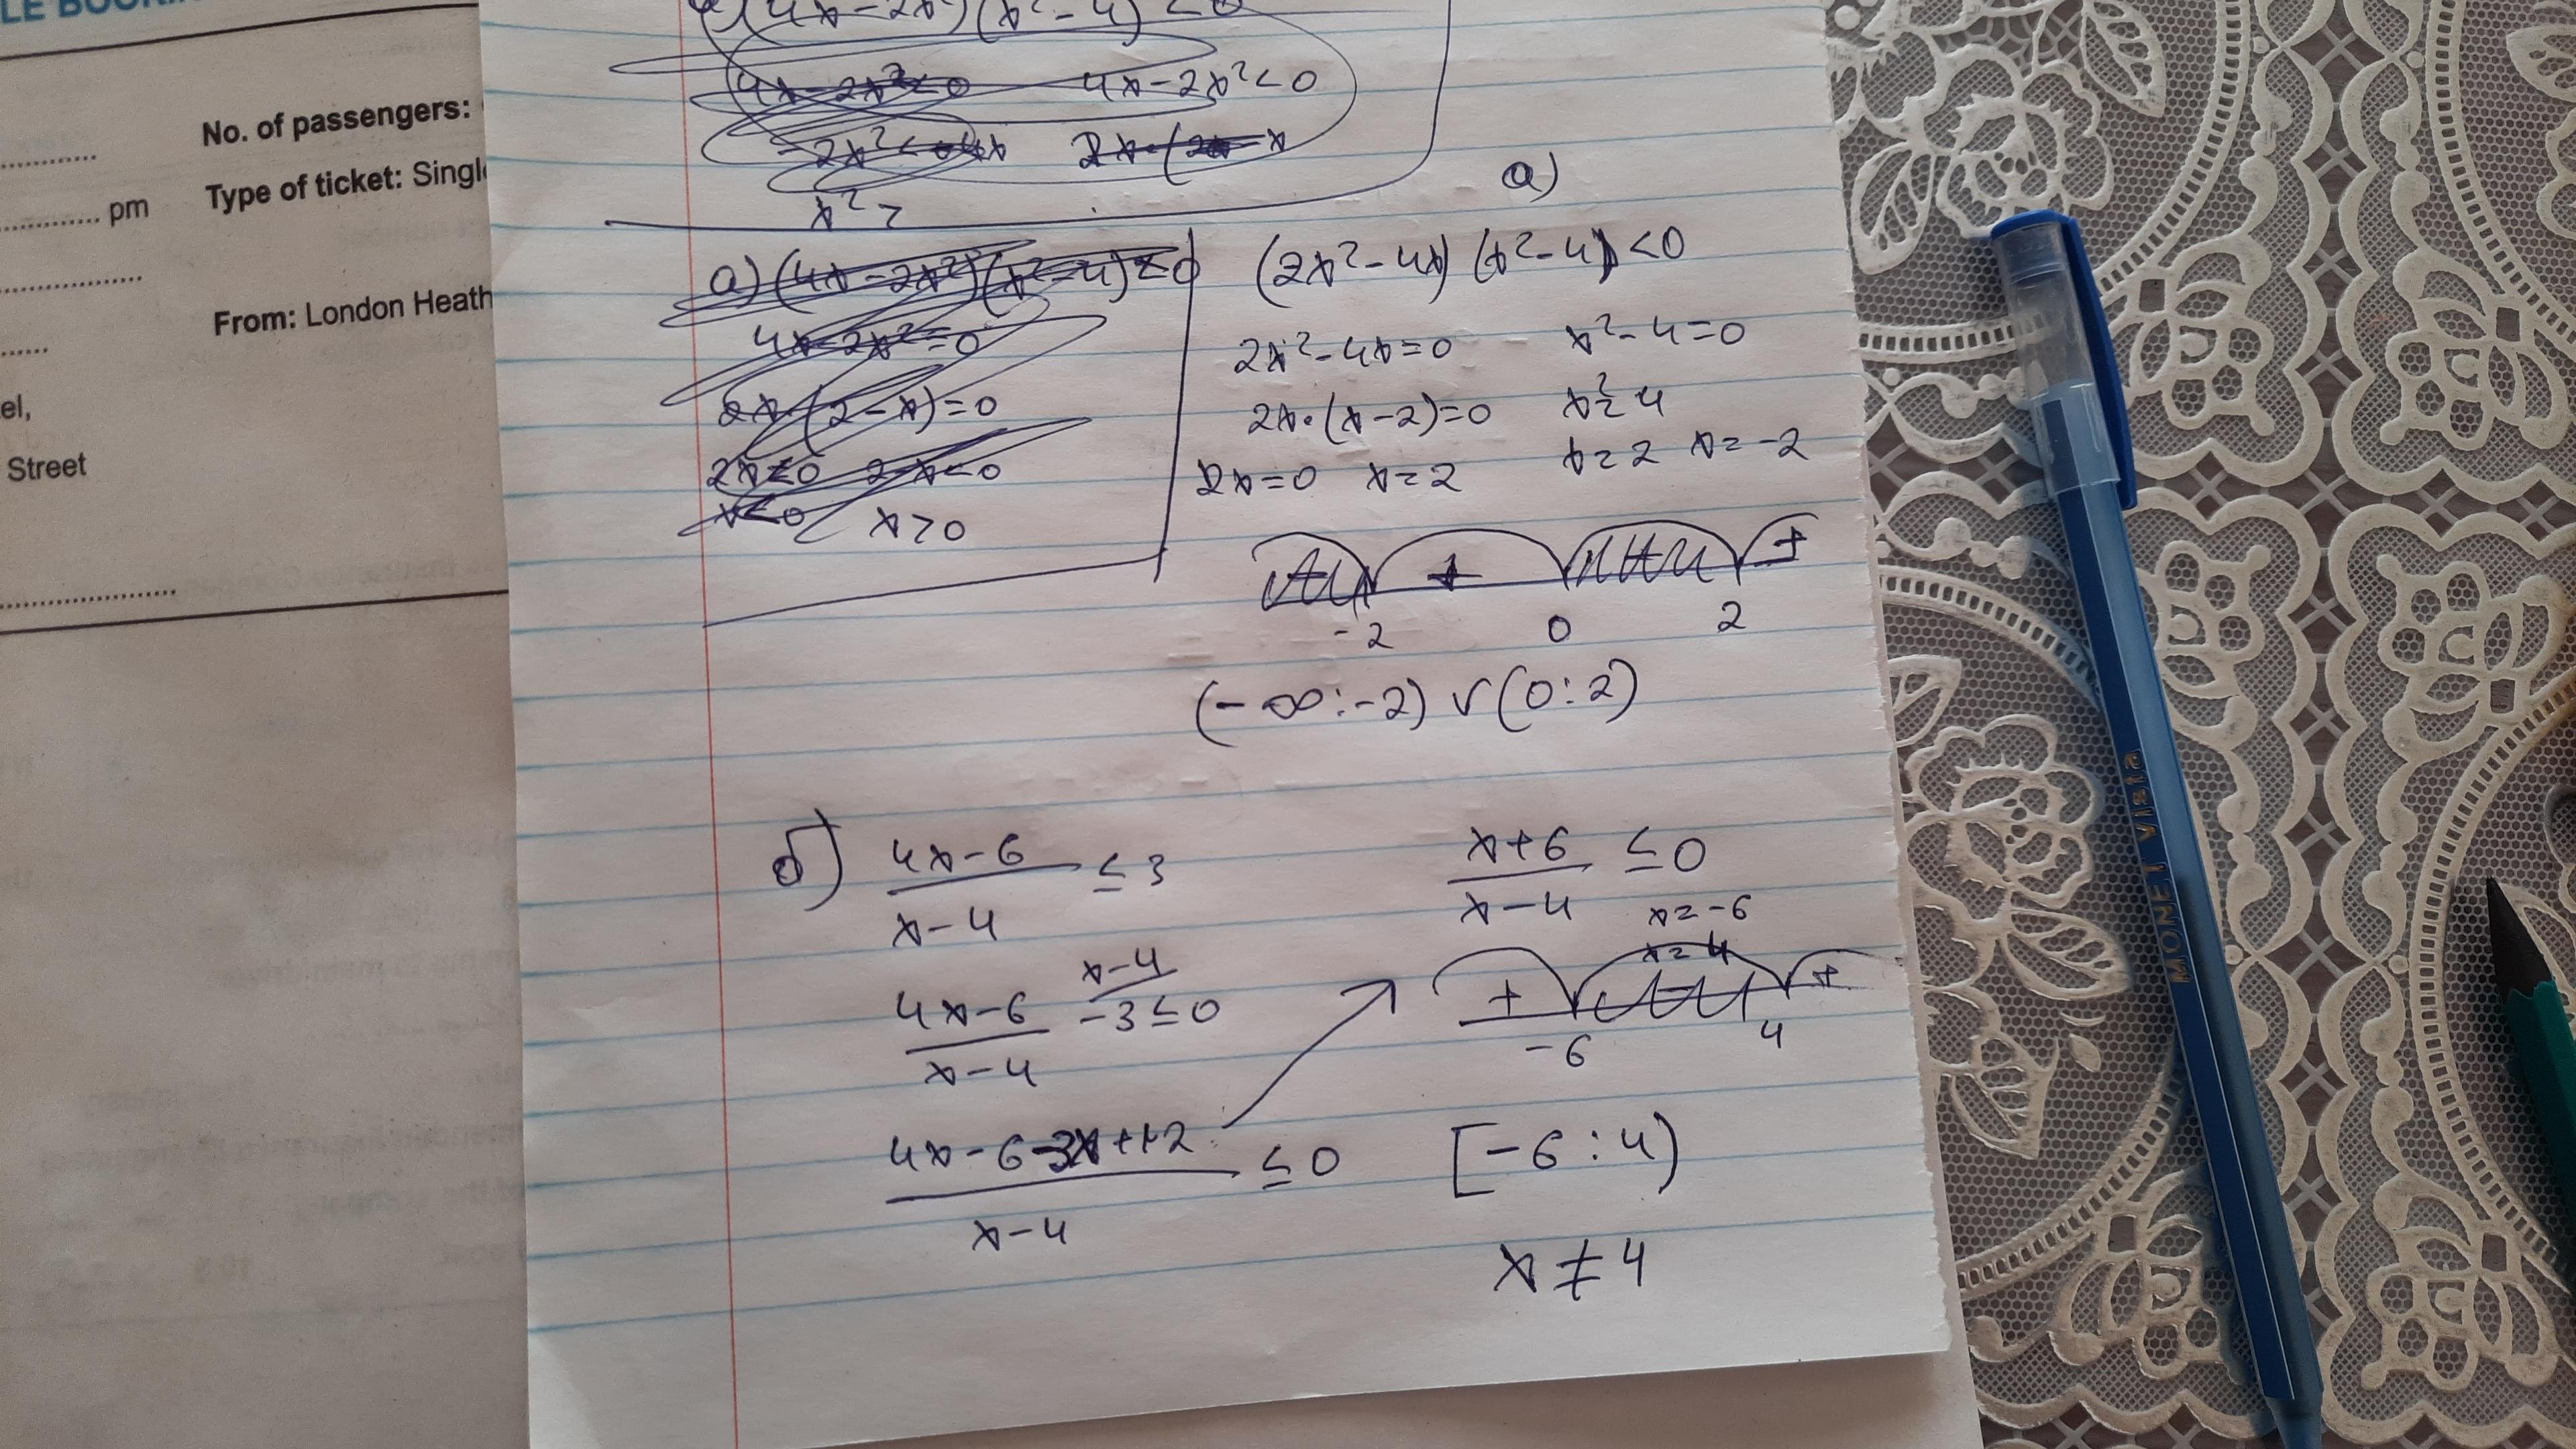 No. of passengers:
pm
Type of ticket: Single
From: London Heath
el,
Street
(4x-2x²)(x²-4)<0
4x-2x²<0 4x-2x²<0
-2x²<-4x
x²>
a) (4x-2x²)(x²-4)<0
4x-2x²=0
2x(2-x)=0
2x<0 2-x<0
x<0 x>0
a)
(2x²-4x)(x²-4)<0
2x²-4x=0 x²-4=0
2x·(x-2)=0 x²=4
2x=0 x=2 x=2 x=-2
+ +
-2 0 2
(-∞:-2)∨(0:2)
б) 4x-6/x-4 ≤3
4x-6/x-4 -3≤0
x-4
4x-6-3x+12/x-4 ≤0
x+6/x-4 ≤0
x=-6
x=4
+ +
-6 4
[-6:4)
x≠4
MONET Vista